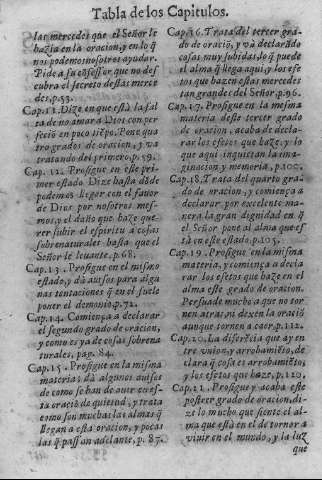 Tabla de los Capitulos.
las mercedes que el Señor le
hazia en la oracion, y en lo q̃
nos podemos nosotros ayudar.
Pide a su cõfessor que no des
cubra el secreto destas merce
des, p.53.
Cap. 11. Dize en que està la fal
ta de no amar a Dios con per
feciõ en poco tiẽpo. Pone qua
tro grados de oracion, y va
tratando del primero, p.59.
Cap. 12. Prosigue en este pri
mer estado. Dize hasta dõde
podemos llegar con el fauor
de Dios por nosotros mes-
mos, y el daño que haze que
rer subir el espiritu a cosas
sobrenaturales hasta que el
Señor le leuante. p.68.
Cap. 13. Prosigue en el mismo
estado, y dà auisos para algu
nas tentaciones q̃ en el suele
poner el demonio p.72.
Cap. 14. Comiença a declarar
el segundo grado de oracion,
y como es ya de cosas sobrena
turales, pag. 84.
Cap. 15. Prosigue en la misma
materia; dà algunos auisos
de como se han de auer en es-
ta oraciõ de quietud, y trata
como son muchas las almas q̃
llegan a esta oracion, y pocas
las q̃ passan adelante, p. 87.
Cap. 16. Trata del tercer gra-
do de oraciõ, y và declarãdo
cosas muy subidas, lo q̃ puede
el alma q̃ llega aqui, y los efe
tos que hazen estas mercedes
tan grandes del Señor. p.96.
Cap. 17. Prosigue en la mesma
materia deste tercer grado
de oracion. acaba de decla-
rar los efetos que haze, y lo
que aqui inquietan la ima-
ginacion y memoria, p.100.
Cap. 18. Trata del quarto gra-
do de oracion, y comiença a
declarar por excelente ma-
nera la gran dignidad en q̃
el Señor pone al alma que es
tà en este estado. p.105.
Cap. 19. Prosigue en la misma
materia, y comiença a decla
rar los efetos que haze en el
alma este grado de oracion.
Persuade mucho a que no tor
nen atràs, ni dexen la oraciõ
aunque tornen a caer, p.112.
Cap. 20. La diferẽcia que ay en
tre vnion, y arrobamiẽto, de
clara q̃ cosa es arrobamiẽto,
y los efetos que haze, p.120.
Cap. 21. Prosigue y acaba este
postrer grado de oracion. di-
ze lo mucho que siente el al-
ma que està en el de tornar a
viuir en el mundo, y la luz
que